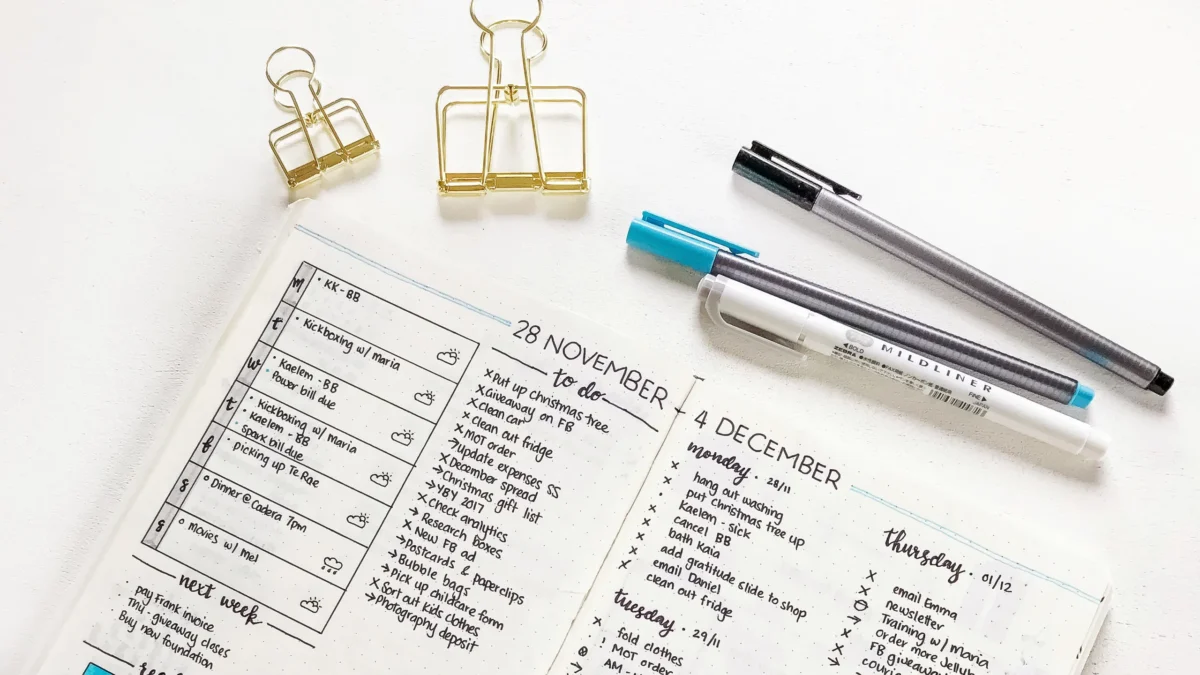 28 NOVEMBER -
m
• KK - BB
t
• Kickboxing w/ maria
w
• Kaelem - BB
• Power bill due
t
• Kickboxing w/ maria
• Kaelem - BB
• Spark bill due
f
• picking up Te Rae
s
○ Dinner @ Cadera 7pm
s
○ movies w/ mel
next week
• pay Frank invoice
• giveaway closes
• Buy new foundation
to do
× Put up christmas tree
× Giveaway on FB
× Clean car
× Clean out fridge
× MOT order
→ update expenses SS
× December spread
→ Christmas gift list
→ YBY 2017
× Check analytics
→ Research boxes
× New FB ad
→ Postcards & paperclips
→ Bubble bags
→ Pick up childcare form
× Sort out kids clothes
→ Photography deposit
4 DECEMBER
monday • 28/11
× hang out washing
× put christmas tree up
• Kaelem - sick
× cancel BB
× bath Kaia
× add gratitude slide to shop
× email Daniel
× clean out fridge
tuesday • 29/11
× fold clothes
MOT order
AM -
thursday • 01/12
× email Emma
× newsletter
Training w/ maria
→ order more Jelly
× FB giveaway
→
BOLD
ZEBRA
MILDLINER
FINE
JAPAN